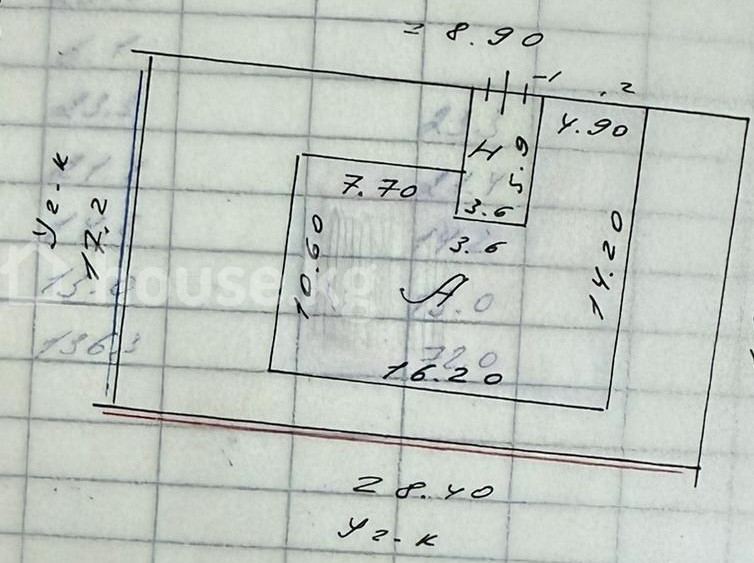 28.90
-1
.2
4.90
H
5.9
Уг-к
17.2
7.70
3.6
3.6
10.60
14.20
А
house.kg
16.20
136.3
28.40
Уг-к